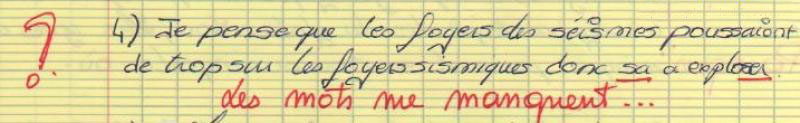 ? 4) Je pense que les foyers des séismes poussaiont
de trop sur les foyers sismiques donc sa a exploser.
des mots me manquent...